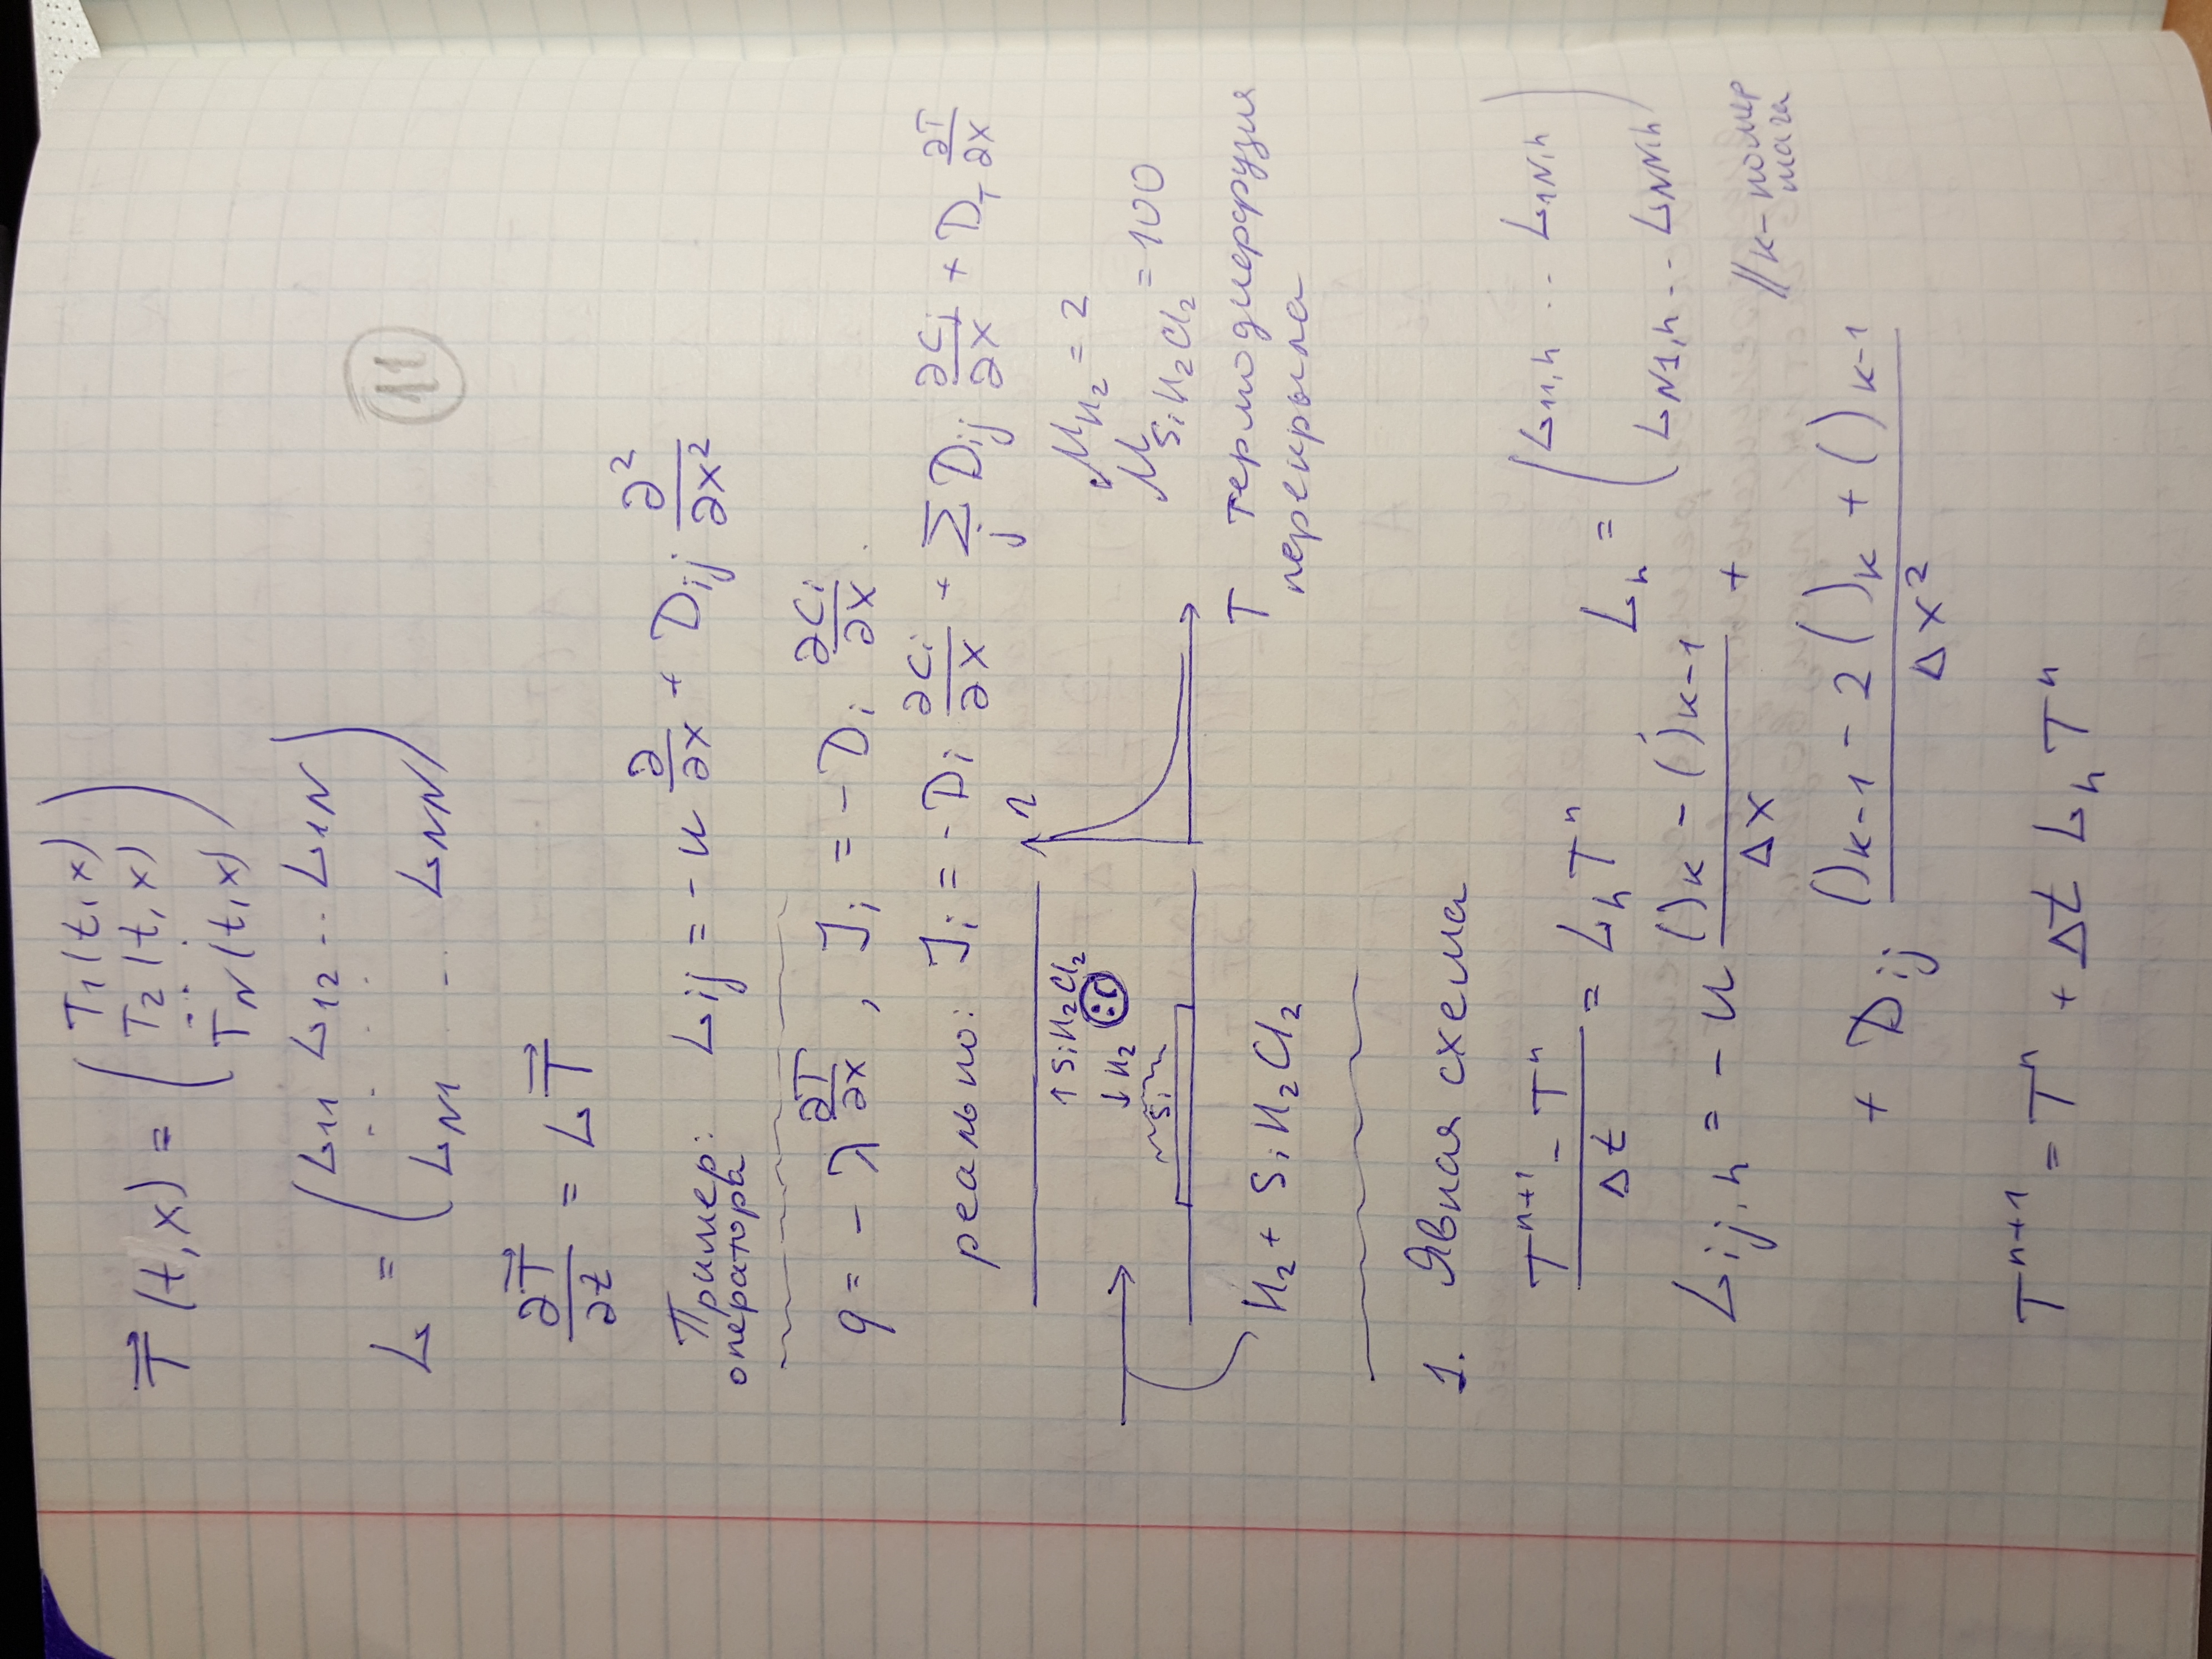 T⃗ (t, x) = ( T₁(t, x)
T₂(t, x)
.. .
T_N(t, x) )
L = ( L₁₁ L₁₂ .. L₁N
.. . .
L_N1 .. L_NN )
11
∂T⃗/∂t = L T⃗
Пример: L_ij = - u ∂/∂x + D_ij ∂²/∂x²
оператора
q = - λ ∂T/∂x , J_i = - D_i ∂C_i/∂x .
реально: J_i = - D_i ∂C_i/∂x + Σ_j D_ij ∂C_j/∂x + D_T ∂T/∂x
↑ SiH₂Cl₂
↓ H₂
Si
η
T
M_H₂ = 2
M_SiH₂Cl₂ = 100
термодиффузия
перекрыла
H₂ + SiH₂Cl₂
1. Явная схема
(T^{n+1} - T^n)/Δt = L_h T^n , L_h = ( L_{11,h} .. L_{1N,h}
L_{N1,h} .. L_{NN,h} )
L_{ij,h} = - u (()_k - ()_{k-1})/Δx +
// k - номер
шага
+ D_ij (()_{k-1} - 2()_k + ()_{k-1})/Δx²
T^{n+1} = T^n + Δt L_h T^n